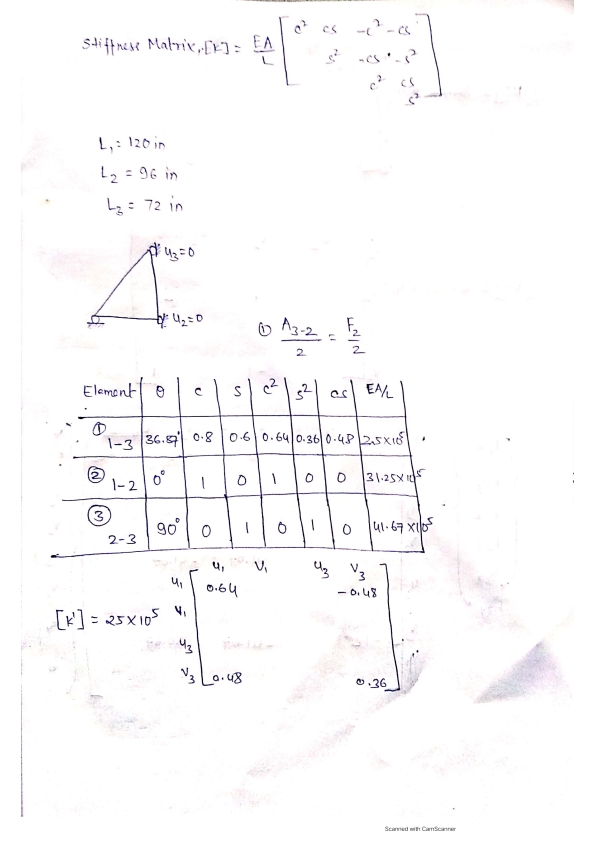 Stiffness Matrix, [K] = EA/L [ c² cs -c² -cs
s² -cs -s²
c² cs
s² ]
L₁ = 120 in
L₂ = 96 in
L₃ = 72 in
u₃=0
u₂=0
① A₃₋₂/2 = F₂/2
Element θ c s c² s² cs EA/L
① 1-3 36.87° 0.8 0.6 0.64 0.36 0.48 25×10⁵
② 1-2 0° 1 0 1 0 0 31.25×10⁵
③ 2-3 90° 0 1 0 1 0 41.67×10⁵
u₁ V₁ u₃ V₃
u₁ 0.64 -0.48
[K'] = 25×10⁵ V₁
u₃
V₃ 0.48 0.36
Scanned with CamScanner